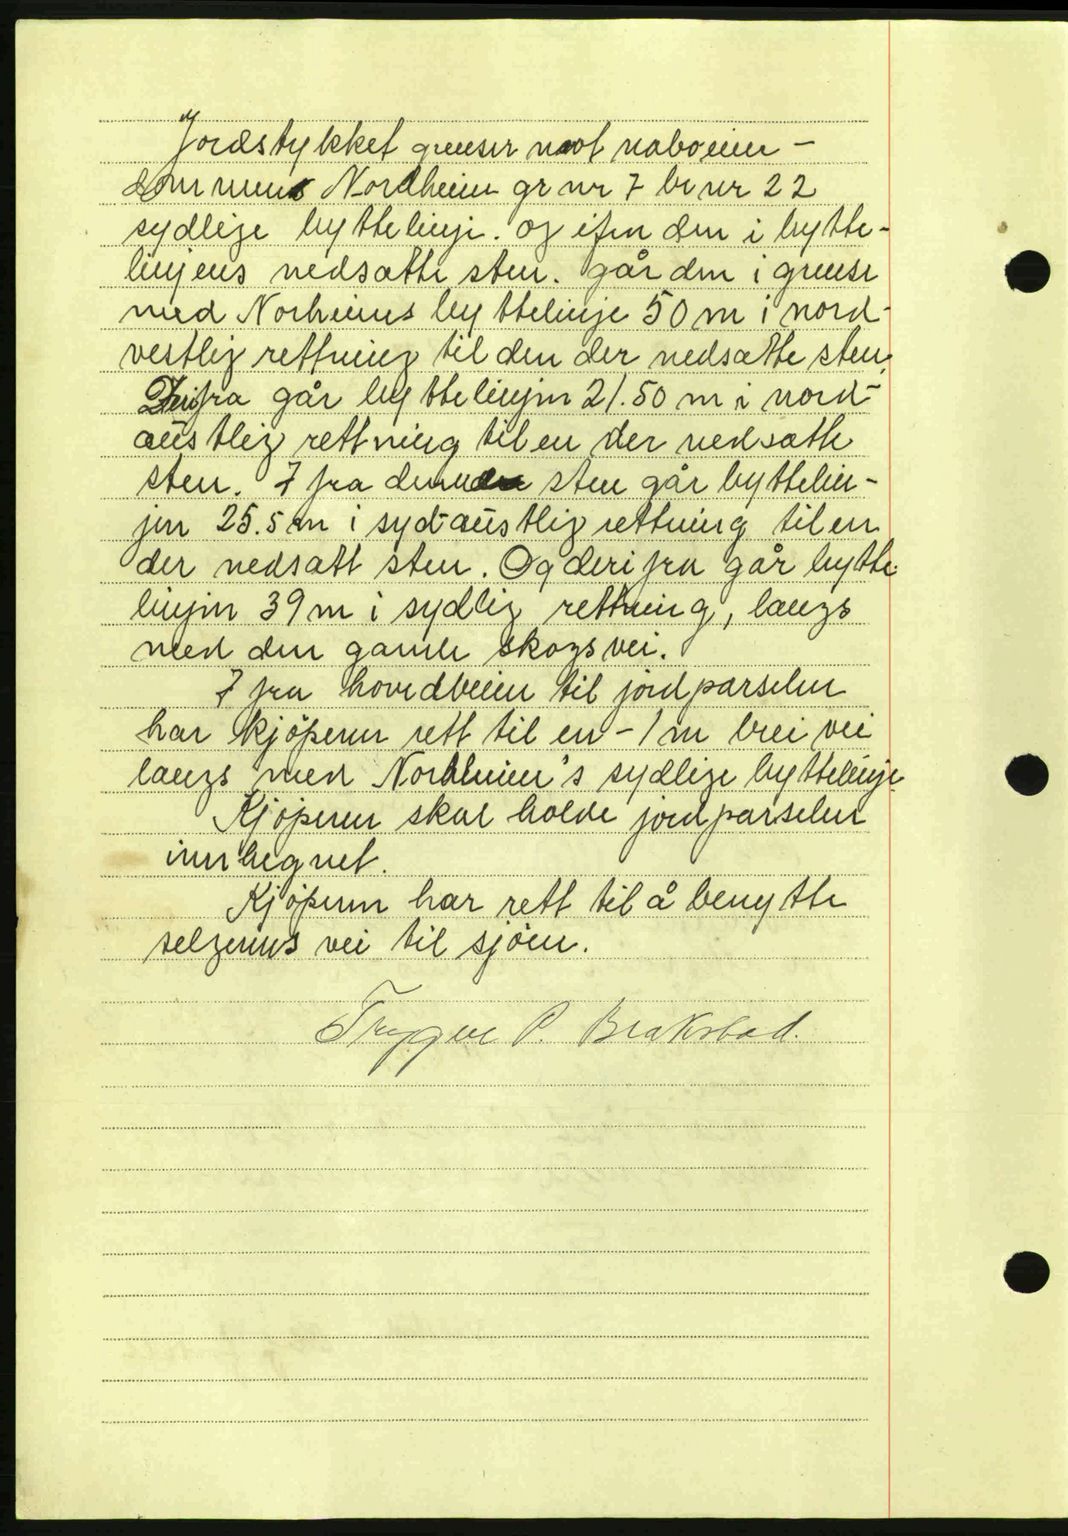 Jordstykket grenser mot naboeien-
dommens Nordheim gr nr 7 br nr 22
sydlige byttelinje. og ifra den i bytte-
linjens nedsatte sten. går den i grense
med Norheims byttelinje 50 m i nord-
vestlig rettning til den der nedsatte sten.
Derifra går byttelinjen 21.50 m i nord-
austlig rettning til en der nedsatte
sten. I fra denne sten går byttelin-
jen 25.5 m i syd-austlig rettning til en
der nedsatt sten. Og derifra går bytte
linjen 39 m i sydlig rettning, langs
med den gamle skogsvei.
I fra hovedveien til jordparselen
har kjöperen rett til en - 1 m brei vei
langs med Nordheim's sydlige byttelinje.
Kjöperen skal holde jordparselen
innhegnet.
Kjöperen har rett til å benytte
selgerens vei til sjöen.
Trygve P. Brakstad.